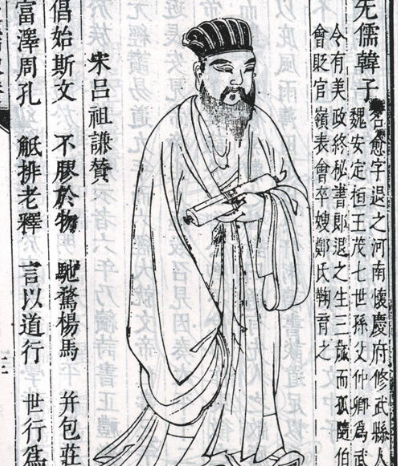 先儒韓子名愈字退之河南懷慶府修武縣人
魏安定桓王茂七世孫父仲卿為武
令有美政終秘書郎退之生三歲而孤隨伯
會貶官嶺表會卒嫂鄭氏鞠育之
宋呂祖謙贊
倡始斯文 不膠於物 馳騖楊馬 并包莊
富澤周孔 觝排老釋 言以道行 世行為